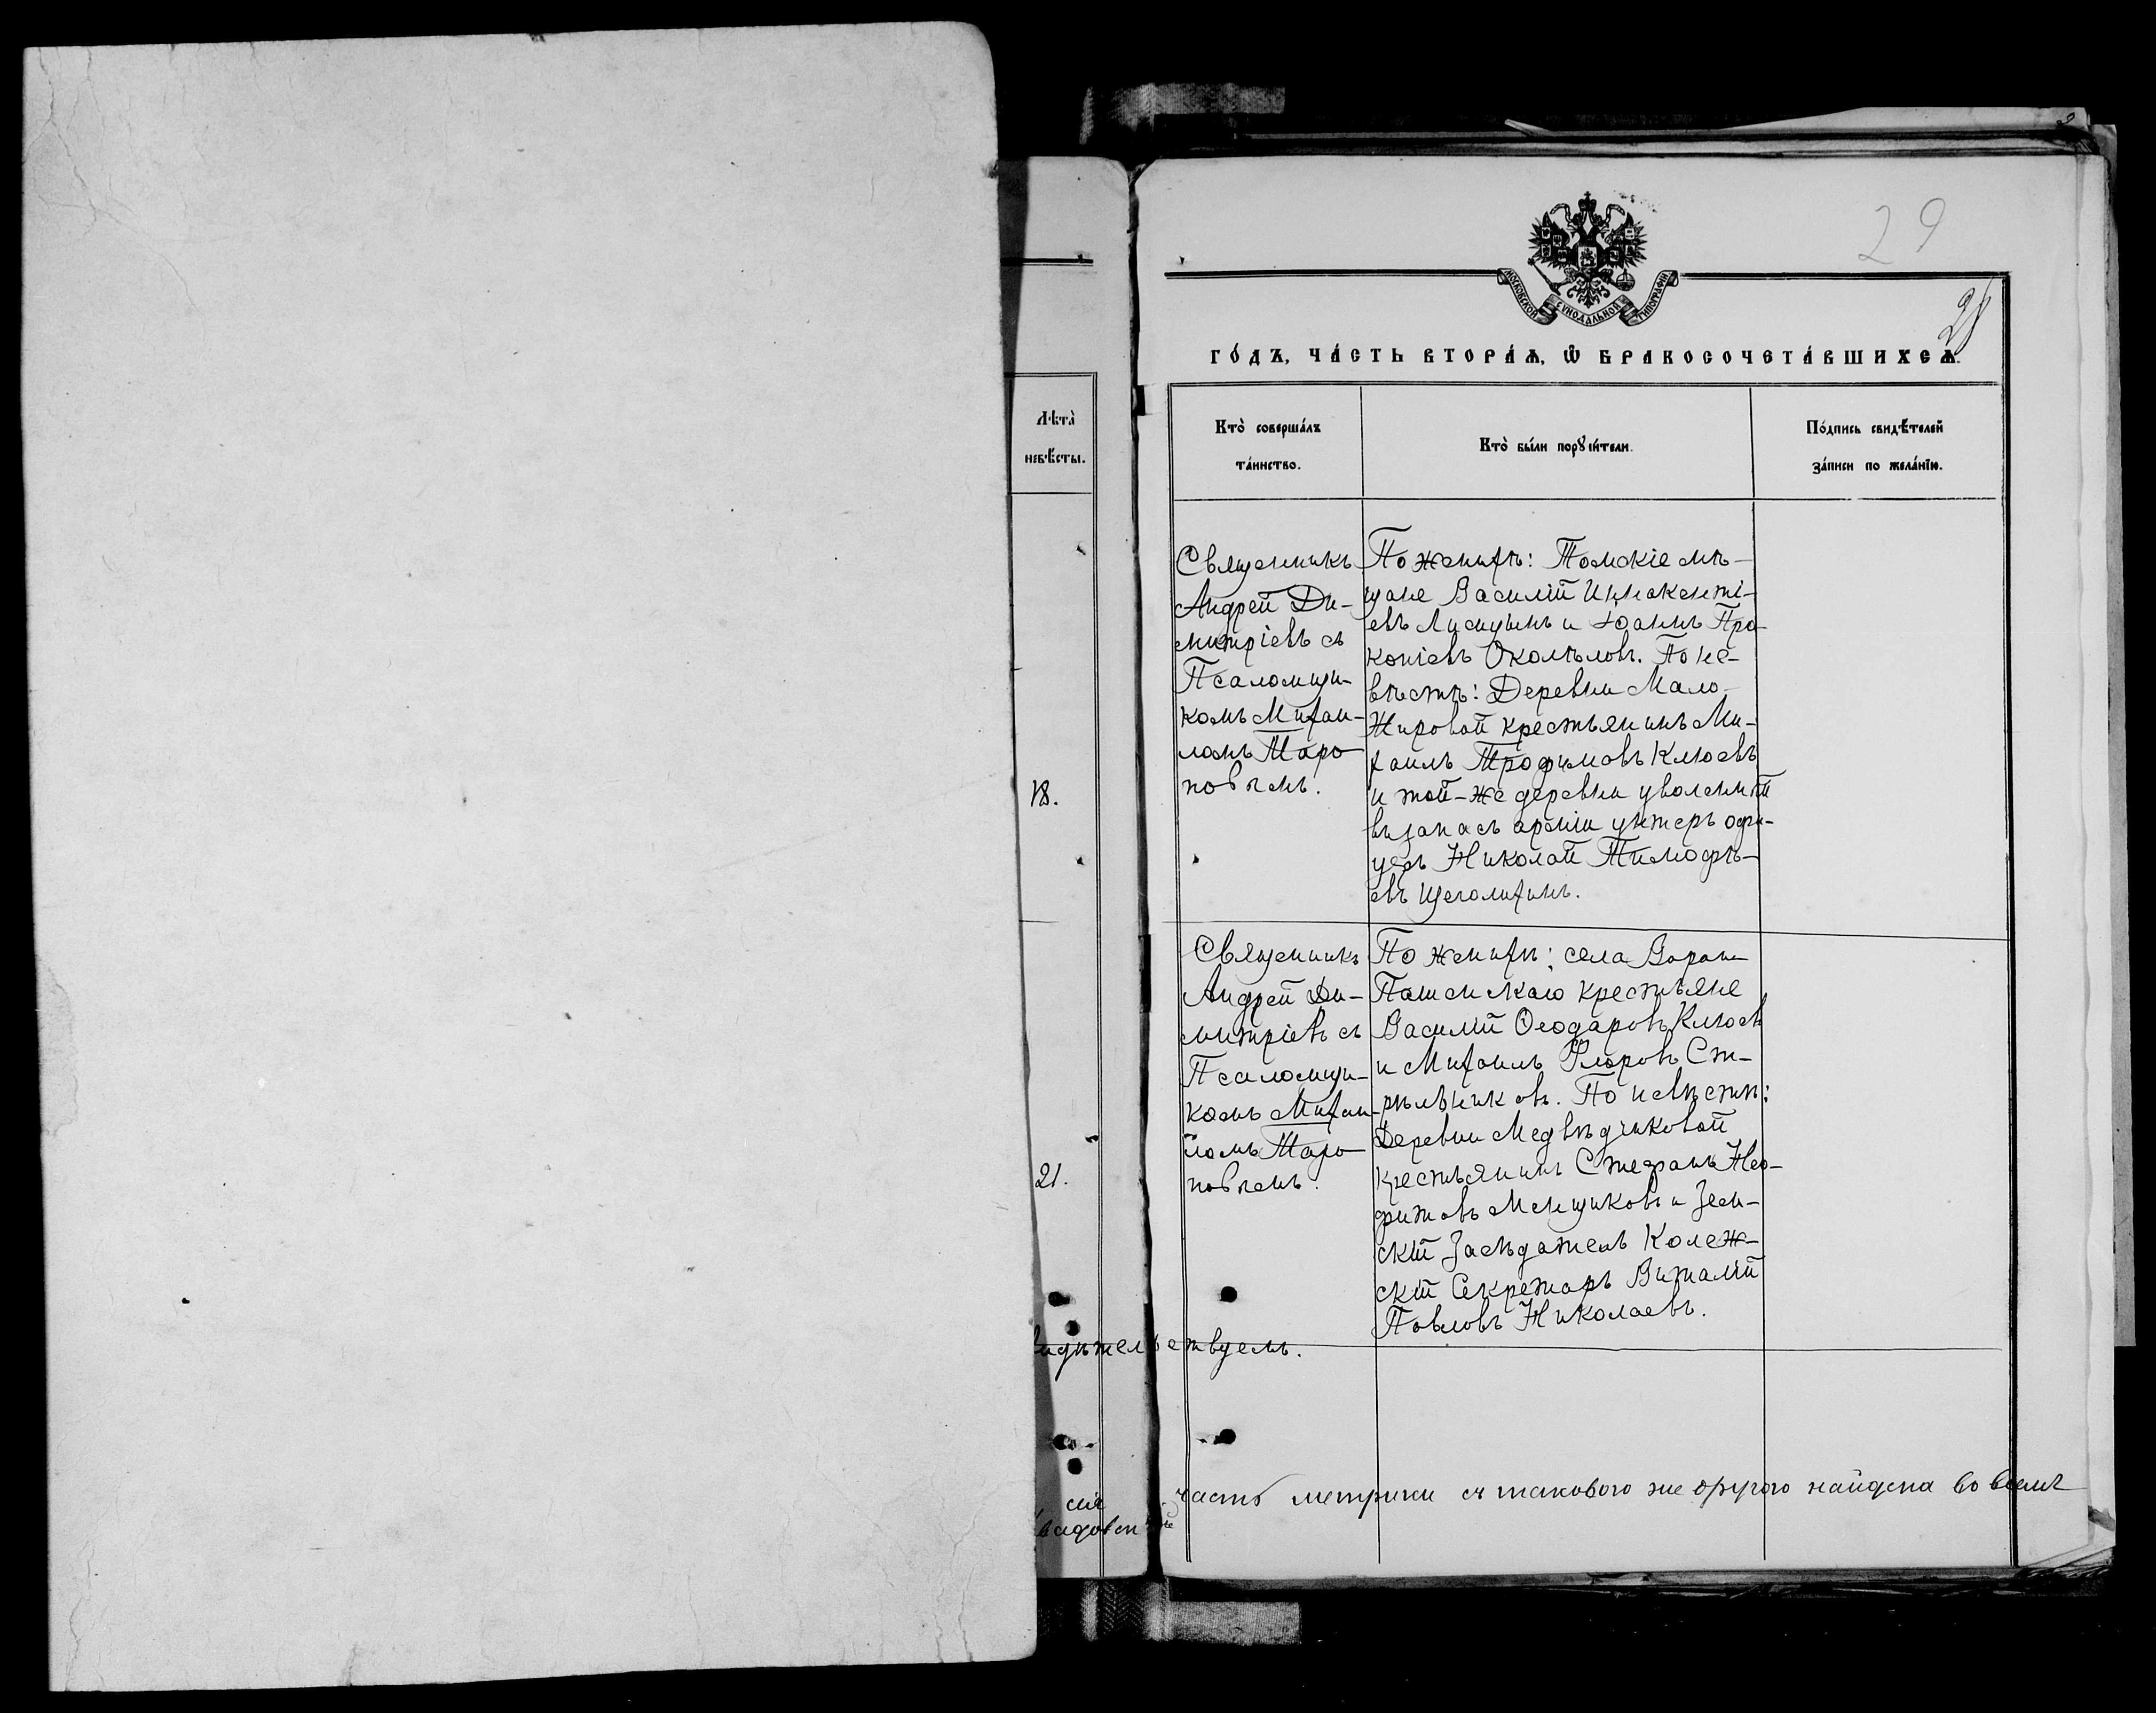 29
28
МОСКОВСКОЙ СУНОДАЛЬНОЙ ТИПОГРАФІИ
ГО́ДЪ, ЧА́СТЬ ВТОРА́Ѧ, Ѡ҆ БРАКОСОЧЕТА́ВШИХСѦ.
Лѣта̀
невѣ́сты.
Кто̀ соверша́лъ
та́инство.
Кто̀ бы́ли порꙋчи́тели.
По́дпись свидѣ́телей
за́писи по жела́нїю.
18.
Священникъ
Андрей Ди-
митріевъ съ
Псаломщи-
комъ Михаи-
ломъ Таро-
повымъ.
По женихѣ: Томскіе мѣ-
щане Василій Иннокенті-
евъ Лисицынъ и Іоаннъ Про-
копіевъ Околѣловъ. По не-
вѣстѣ: Деревни Мало-
Жировой крестьянинъ Ми-
хаилъ Трофимовъ Клюевъ
и той-же деревни уволенный
въ запасъ арміи унтеръ офи-
церъ Николай Тимофѣ-
евъ Щеголихинъ.
21.
Священникъ
Андрей Ди-
митріевъ съ
Псаломщи-
комъ Михаи-
ломъ Таро-
повымъ.
По женихѣ: села Вороно-
Пашенскаго крестьяне
Василій Ѳеодоровъ Клюевъ
и Михаилъ Флоровъ Ст-
рѣльниковъ. По невѣстѣ:
Деревни Медвѣдчиковой
крестьянинъ Стефанъ Нео-
фитовъ Менщиковъ и Зем-
скій Засѣдатель Колеж-
скій Секретарь Виталій
Павловъ Николаевъ.
видѣтельствуемъ.
сія часть метрики съ таковою же другою найдена во всемъ